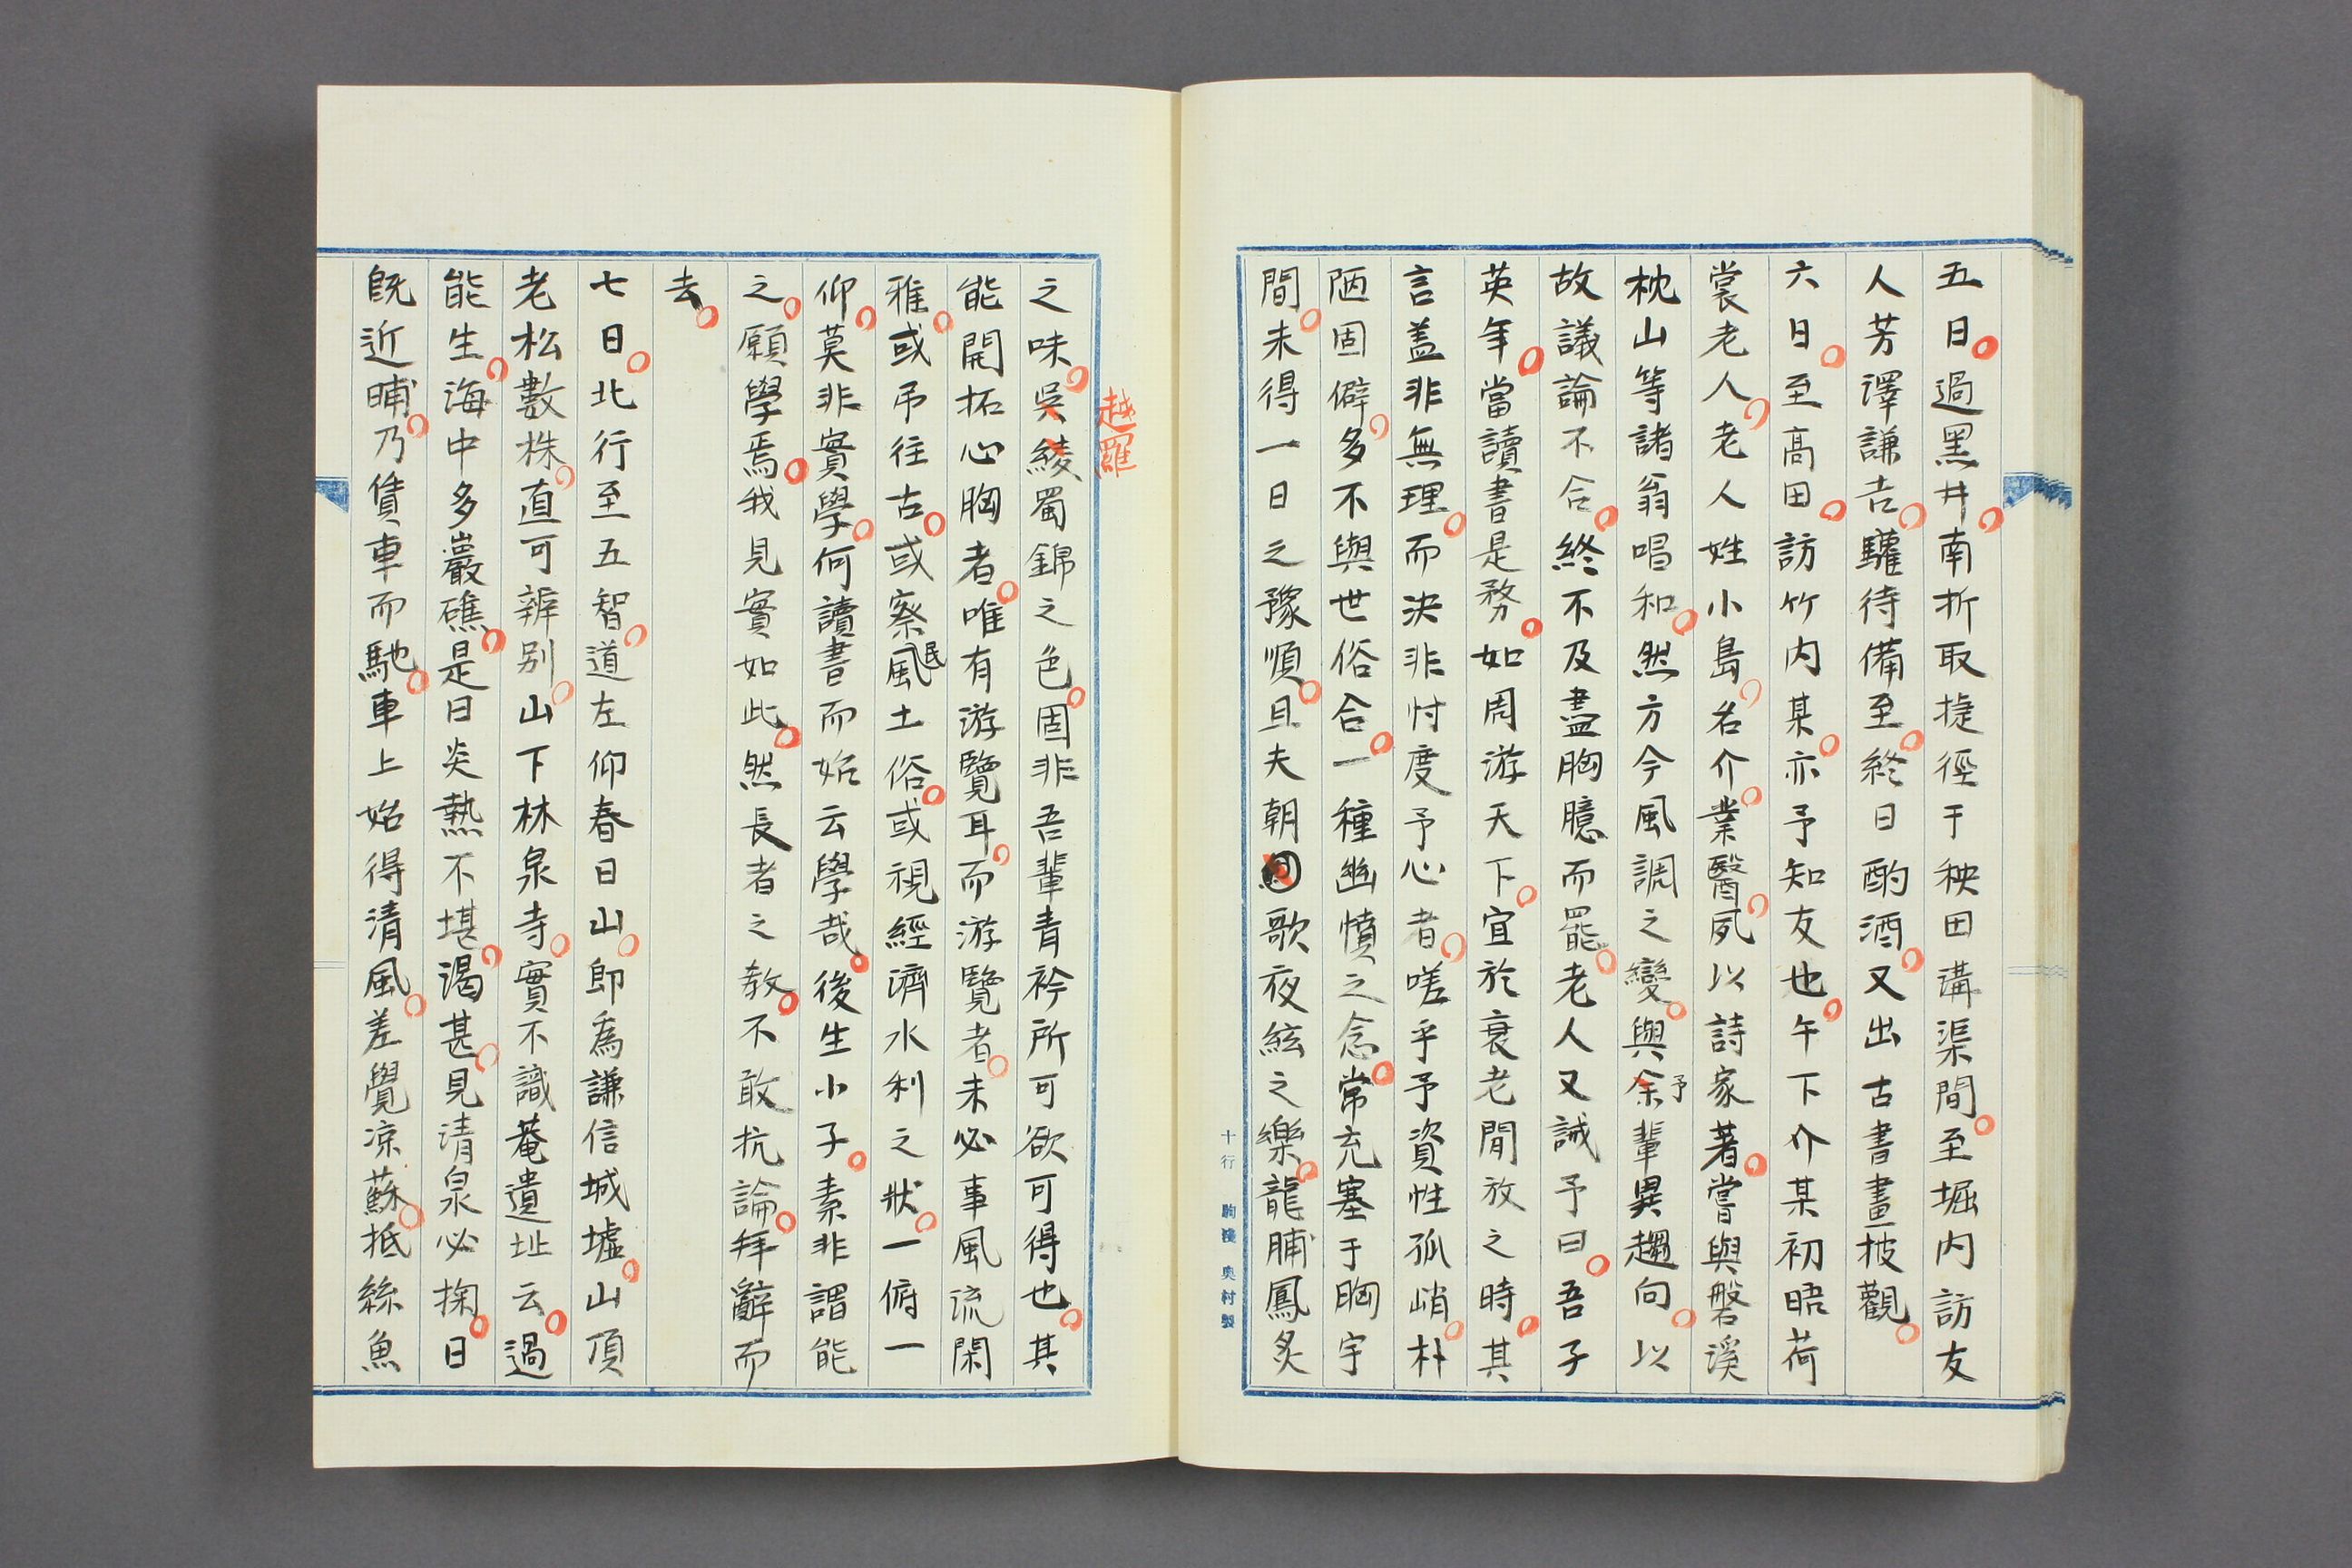 五日過黑井南折取捷徑于秧田溝渠間至堀内訪友
人芳澤謙吉驩待備至終日酌酒又出古書畫披觀
六日至高田訪竹内某亦予知友也午下介某初晤荷
裳老人老人姓小島名介業醫夙以詩家著嘗與磐溪
枕山等諸翁唱和然方今風調之變與余予輩異趨向以
故議論不合終不及盡胸臆而罷老人又誡予曰吾子
英年當讀書是務如周游天下宜於衰老閒放之時其
言盖非無理而決非忖度予心者嗟乎予資性孤峭朴
陋固僻多不與世俗合一種幽憤之念常充塞于胸宇
間未得一日之豫順且夫朝歌夜絃之樂龍脯鳳炙
十行 駒棲 奥村製
越羅
之味吳綾蜀錦之色固非吾輩青衿所可欲可得也其
能開拓心胸者唯有游覽耳而游覽者未必事風流閑
雅或弔往古或察民風土俗或視經濟水利之狀一俯一
仰莫非實學何讀書而始云學哉後生小子素非謂能
之願學焉我見實如此然長者之教不敢抗論拜辭而
去
七日北行至五智道左仰春日山即為謙信城墟山頂
老松數株直可辨別山下林泉寺實不識菴遺址云過
能生海中多巖礁是日炎熱不堪渴甚見清泉必掬日
既近晡乃賃車而馳車上始得清風差覺凉蘇抵絲魚